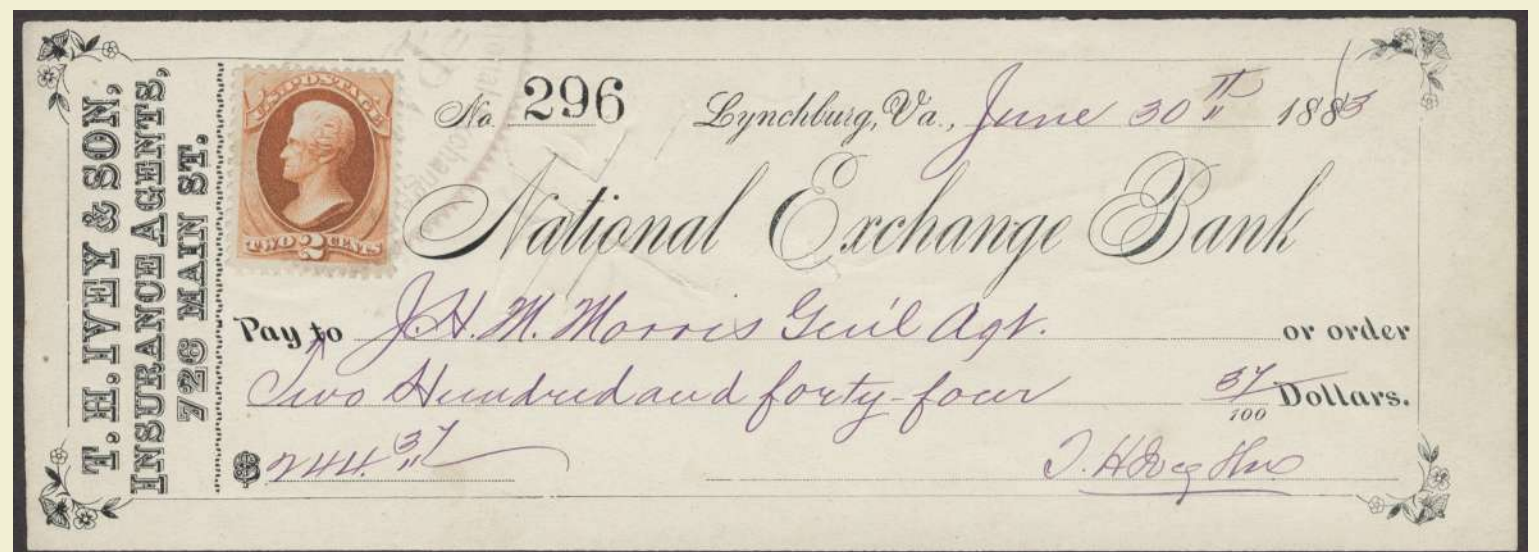 T. H. IVEY & SON,
INSURANCE AGENTS,
726 MAIN ST.
U.S. POSTAGE
TWO 2 CENTS
No. 296 Lynchburg, Va., June 30th 1883
National Exchange Bank
Pay to J. H. M. Morris Gen'l Agt. or order
Two Hundred and forty-four 37/100 Dollars.
$ 244.37
T. H. Ivey & Son